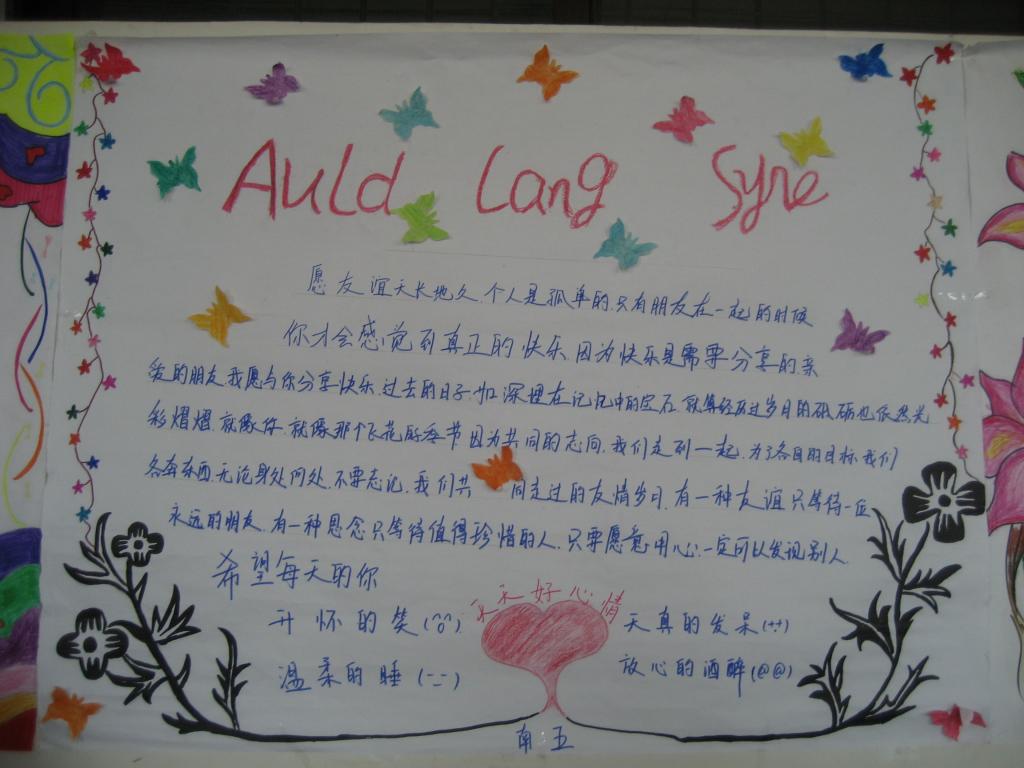 Auld Lang Syne
愿友谊天长地久.个人是孤单的.只有朋友在一起的时候
你才会感觉到真正的快乐.因为快乐是需要分享的.亲
爱的朋友.我愿与你分享快乐.过去的日子.如深埋在记忆中的宝石.就算经历过岁月的砥砺也依然光
彩熠熠.就像你.就像那个飞花的季节.因为共同的志向.我们走到一起.为了各自的目标.我们
各奔东西.无论身处何处.不要忘记.我们共同走过的友情岁月.有一种友谊只等待一位
永远的朋友.有一种思念只等待值得珍惜的人.只要愿意.用心.一定可以发现.别人
希望每天的你
天天好心情
开怀的笑(^o^) 天真的发呆(*+*)
温柔的睡(-_-) 放心的酒醉(@@)
南五